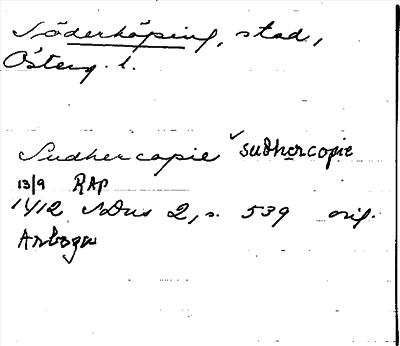 Söderköping, stad,
Österg. l.
Sudhercopie sudhercopie
13/9 RAp
1412 SDns 2, s. 539 orig.
Arboga